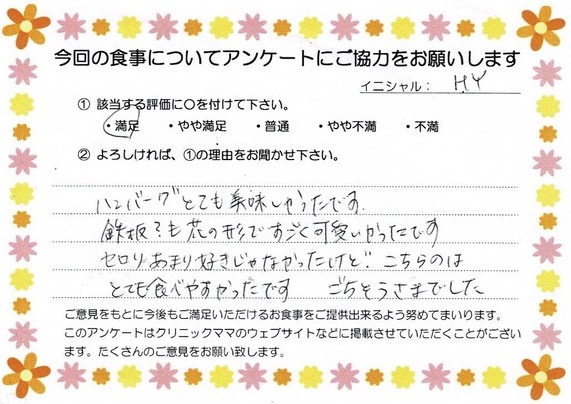 今回の食事についてアンケートにご協力をお願いします
イニシャル： H.Y
① 該当する評価に〇を付けて下さい。
・満足 ・やや満足 ・普通 ・やや不満 ・不満
② よろしければ、①の理由をお聞かせ下さい。
ハンバーグとても美味しかったです。
鉄板?も花の形ですごく可愛いかったです
セロリあまり好きじゃなかったけど‼こちらのは
とても食べやすかったです ごちそうさまでした
ご意見をもとに今後もご満足いただけるお食事をご提供出来るよう努めてまいります。
このアンケートはクリニックママのウェブサイトなどに掲載させていただくことがござい
ます。たくさんのご意見をお願い致します。